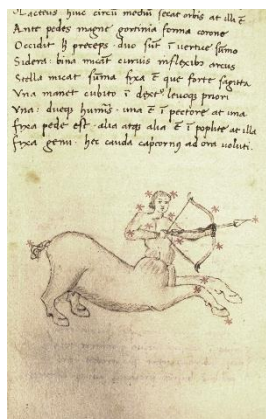 Lacteus huic circū mediū secat orbis at ille
Ante pedes magnę gortinia forma coronę
Occidit h preceps. duo sūt ī uertice sūmo
Sidera. bina micāt curuis īflexibꝰ arcus
Stella micat sūma fixa ē que forte sagitta
Vna manet cubito ī dext° leuoqꝫ priori
Vna. dueqꝫ humīs. una ē ī pectore at una
fixa pede est. alia atqꝫ alia ē ī poplite at illa
fixa genu. hec cauda capcornꝰ ad ora uoluti.